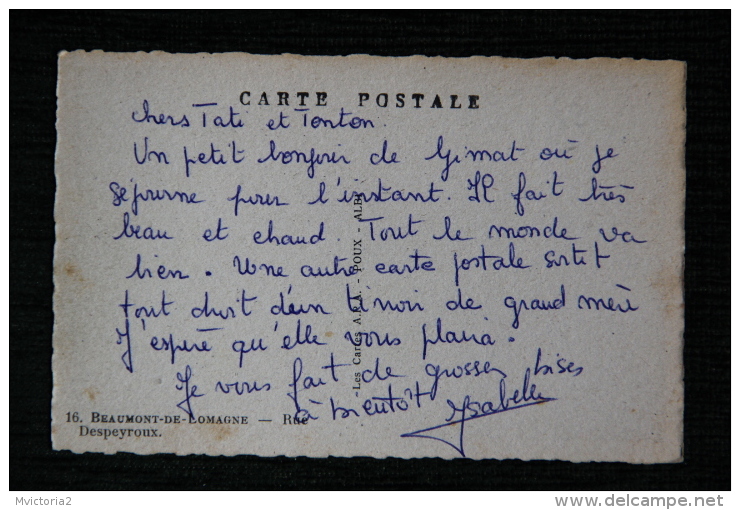 CARTE POSTALE
chers Tati et Tonton
Un petit bonjour de Gimat où je
séjourne pour l'instant. Il fait très
beau et chaud. Tout le monde va
bien. Une autre carte postale sortit
tout droit d'un tiroir de grand mère
J'espère qu'elle vous plaira.
Je vous fait de grosses bises
à bientôt Isabelle
-Les Cartes A.P.A. - POUX - ALBI-
16. BEAUMONT-DE-LOMAGNE — Rue
Despeyroux.
Mvictoria2
www.delcampe.net